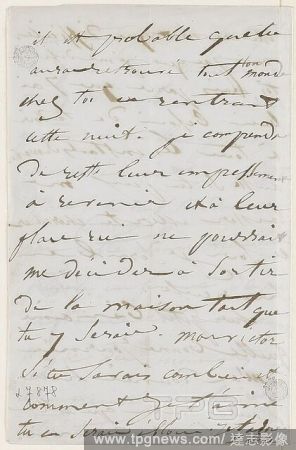 il est probable que tu
auras retrouvé tout ton monde
chez toi en rentrant
cette nuit. je comprends
de reste leur empressement
à revenir et à leur
place rien ne pourrait
me décider à sortir
de la maison tant que
tu y serais. mon Victor
si tu savais combien et
comment je t'aime
tu en serais
27878
TPG
www.tpgnews.com/達志影像